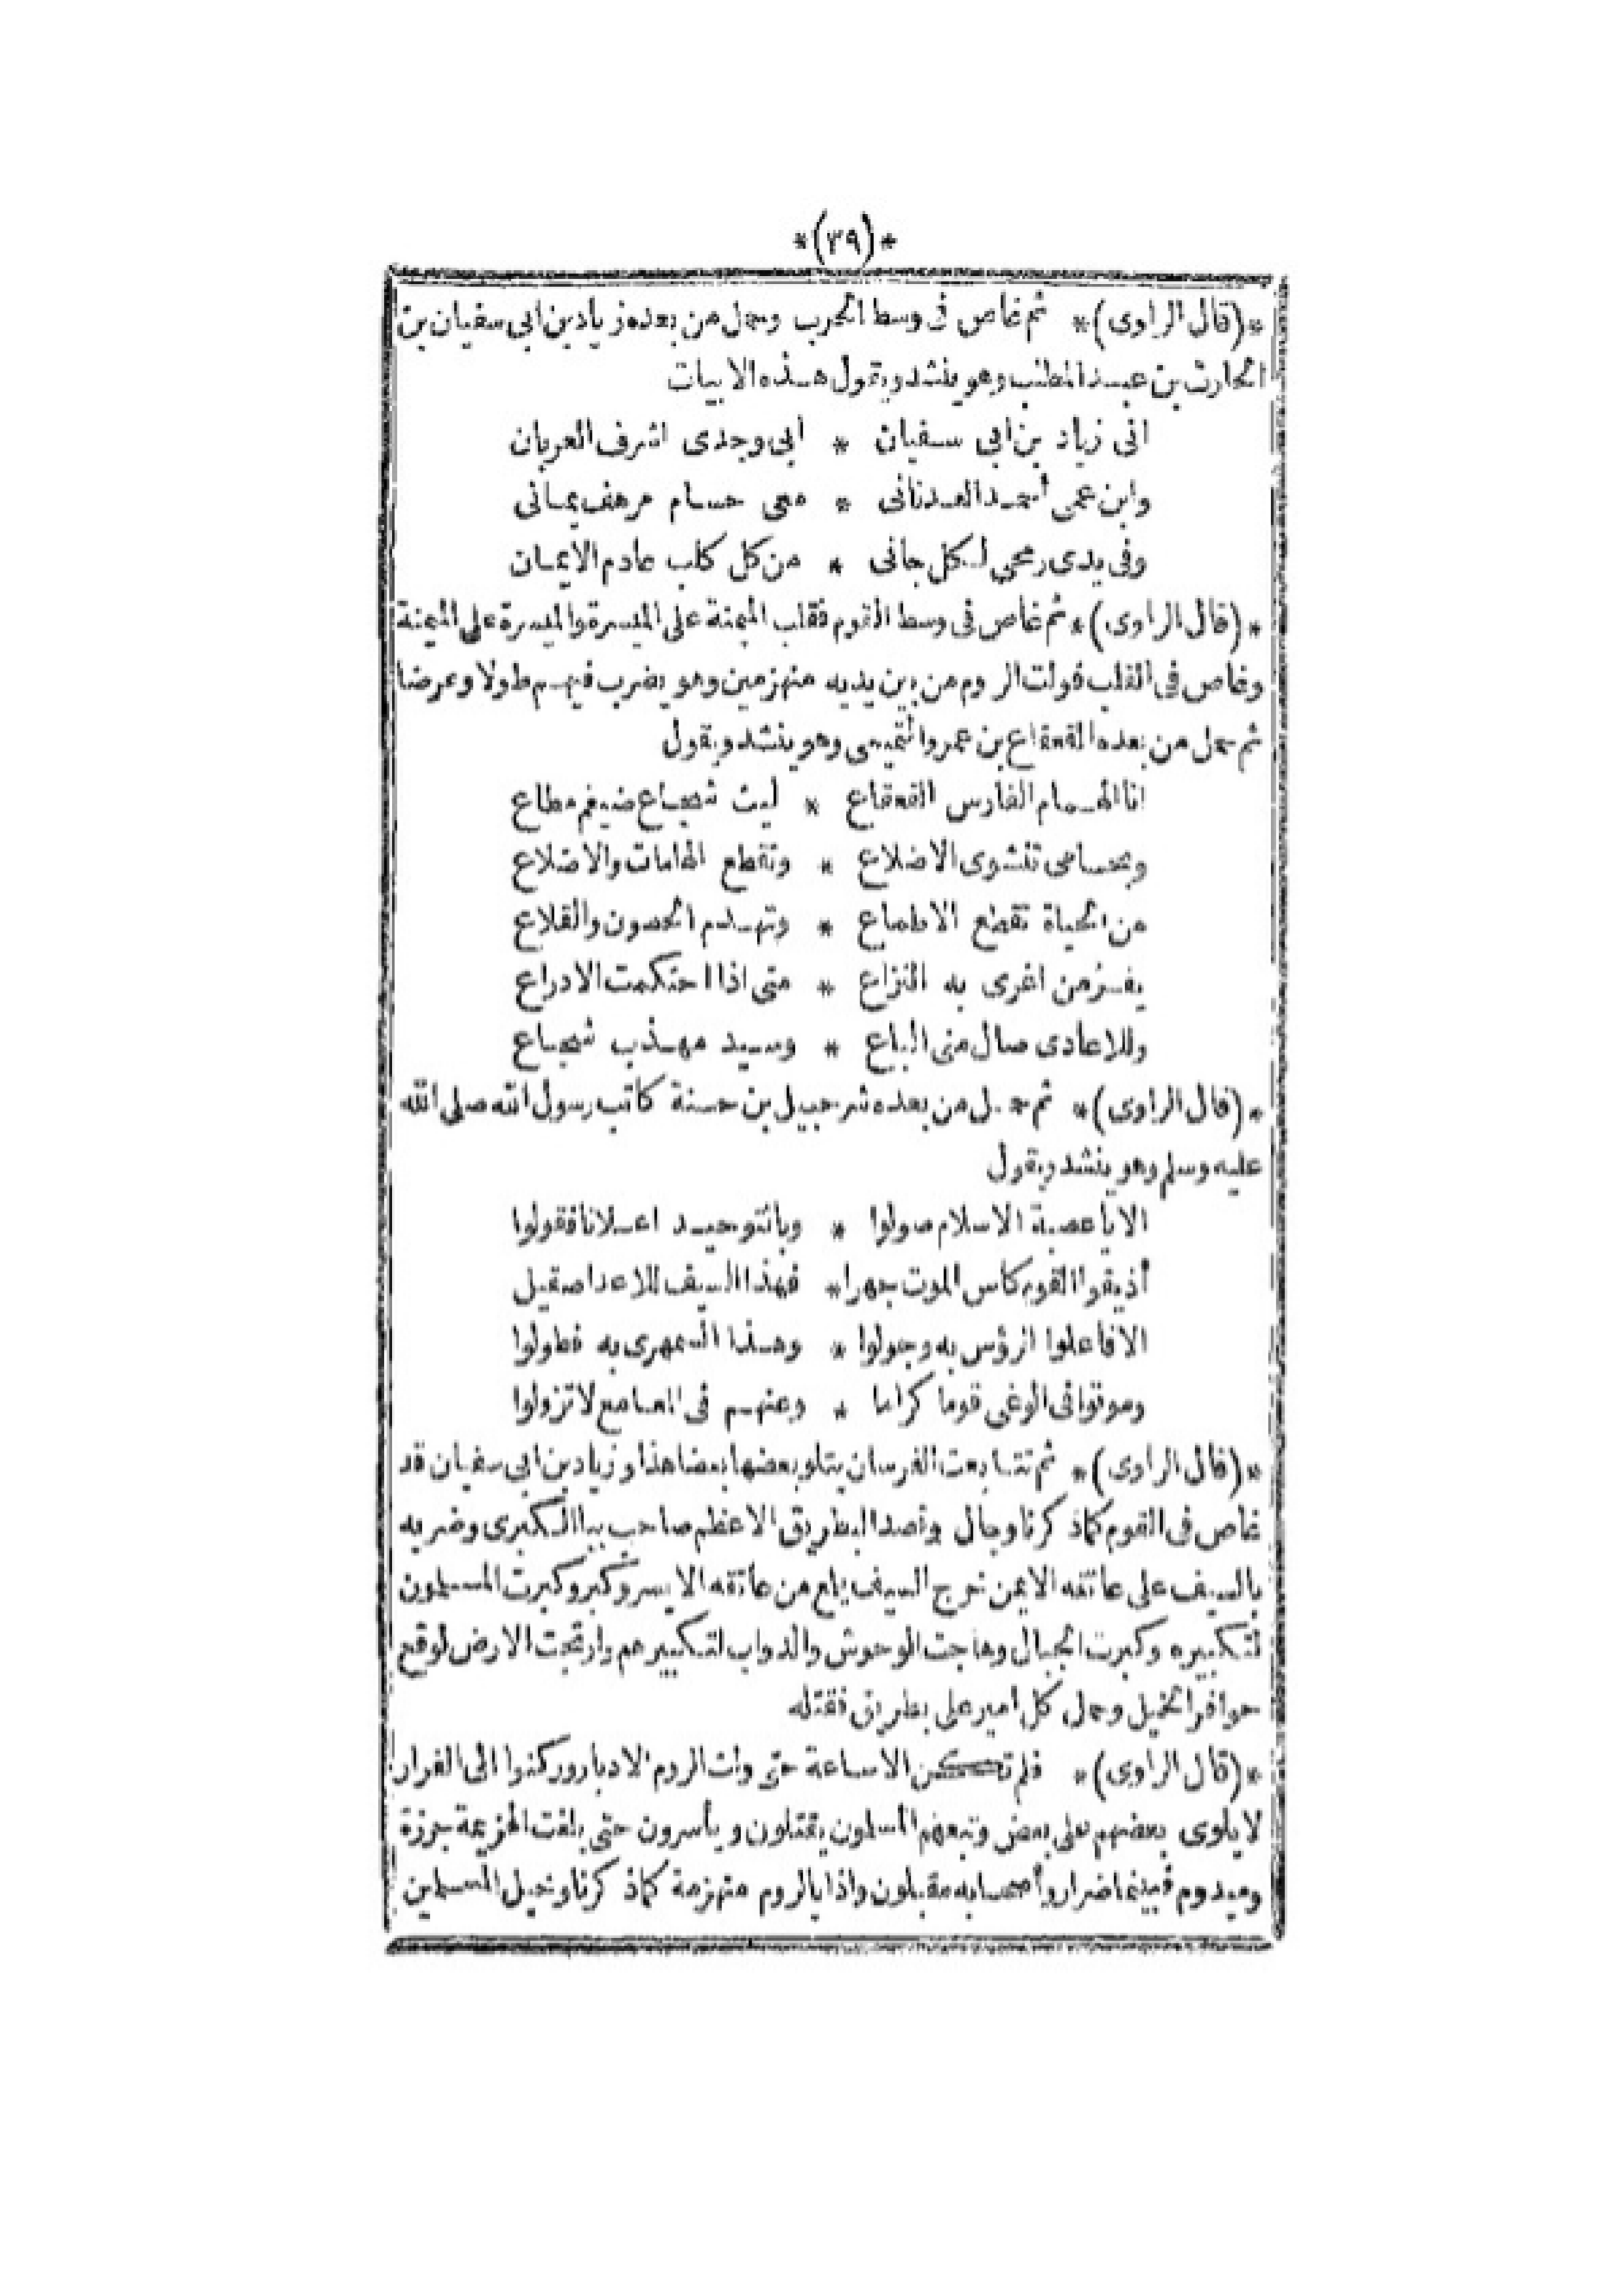 *(٣٩)*
*(قال الراوى)* ثم غاص فى وسط الحرب وحمل من بعده زياد بن ابى سفيان بن
الحارث بن عبد المطلب وهو ينشد ويقول هذه الابيات
انى زياد بن ابى سفيان * ابى وجدى اشرف العربان
وابن عمى أحمد العدنانى * معى حسام مرهف يمانى
وفى يدى رمحى لكل جانى * من كل كلب عادم الايمان
*(قال الراوى)* ثم غاص فى وسط القوم فقلب الميمنة على الميسرة والميسرة على الميمنة
وغاص فى القلب فولت الروم من بين يديه منهزمين وهو يضرب فيهم طولا وعرضا
ثم حمل من بعده القعقاع بن عمرو التميمى وهو ينشد ويقول
انا الهمام الفارس القعقاع * ليث شجاع ضيغم مطاع
وبحسامى تنشوى الاضلاع * وتقطع الهامات والاضلاع
من الحياة تقطع الاطماع * وتهدم الحصون والقلاع
يفر من اغرى به النزاع * متى اذا احتكمت الادراع
وللاعادى صال منى الباع * وسيد مهذب شجاع
*(قال الراوى)* ثم حمل من بعده شرحبيل بن حسنة كاتب رسول الله صلى الله
عليه وسلم وهو ينشد ويقول
الا ياعصبة الاسلام صولوا * وبالتوحيد اعلانا فقولوا
أذيقوا القوم كاس الموت جهرا * فهذا السيف للاعدا صقيل
الا فاعلوا الرؤس به وجولوا * وهذا السمهرى به فطولوا
وموتوا فى الوغى قوما كراما * وعنهم فى المعامع لا تزولوا
*(قال الراوى)* ثم تتابعت الفرسان يتلو بعضها بعضا هذا وزياد بن ابى سفيان قد
غاص فى القوم كما ذكرنا وجال وقصد البطريق الاعظم صاحب ببا الكبرى وضربه
بالسيف على عاتقه الايمن خرج السيف يلمع من عاتقه الايسر وكبر وكبرت المسلمون
لتكبيره وكبرت الجبال وهاجت الوحوش والدواب لتكبيرهم وارتجت الارض لوقع
حوافر الخيل وحمل كل امير على بطريق فقتله
*(قال الراوى)* فلم تكن الا ساعة حتى ولت الروم الادبار وركنوا الى الفرار
لا يلوى بعضهم على بعض وتبعهم المسلمون يقتلون ويأسرون حتى بلغت الهزيمة برزة
وميدوم فبينما ضرار وأصحابه مقبلون واذا بالروم منهزمة كما ذكرنا وخيل المسلمين